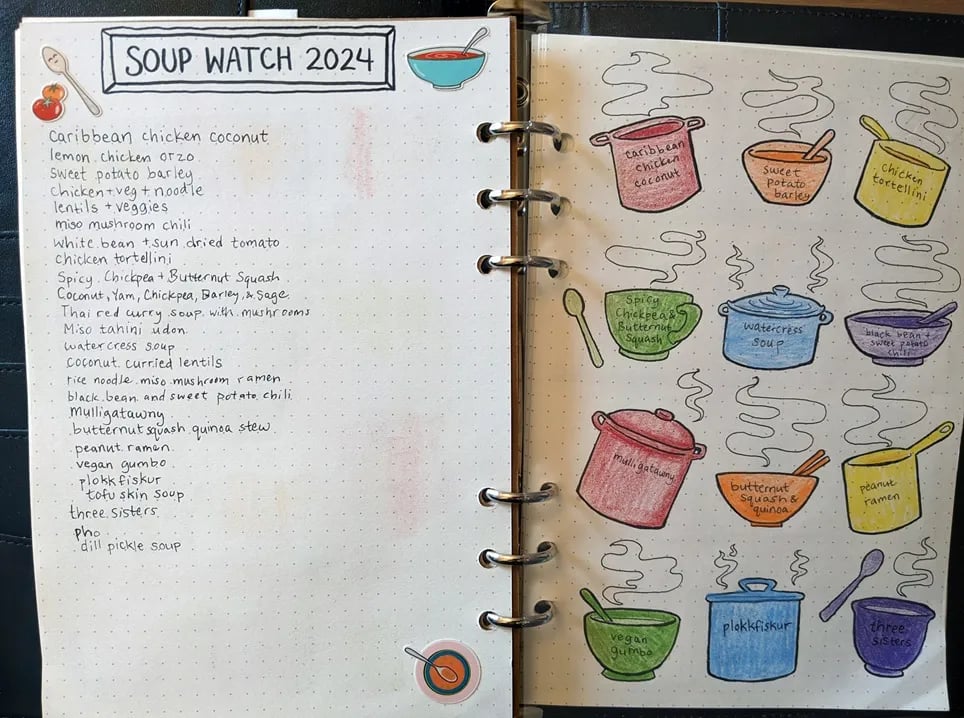 SOUP WATCH 2024
Caribbean chicken coconut
lemon chicken orzo
sweet potato barley
chicken + veg + noodle
lentils + veggies
miso mushroom chili
white bean + sun dried tomato
chicken tortellini
Spicy Chickpea + Butternut Squash
Coconut, Yam, Chickpea, Barley, & Sage
Thai red curry soup with mushrooms
Miso tahini udon
watercress soup
coconut curried lentils
rice noodle miso mushroom ramen
black bean and sweet potato chili
Mulligatawny
butternut squash quinoa stew
peanut ramen
vegan gumbo
plokkfiskur
tofu skin soup
three sisters
pho
dill pickle soup
caribbean
chicken
coconut
sweet
potato
barley
chicken
tortellini
Spicy
Chickpea &
Butternut
Squash
watercress
soup
black bean +
sweet potato
chili
mulligatawny
butternut
squash &
quinoa
peanut
ramen
vegan
gumbo
plokkfiskur
three
sisters